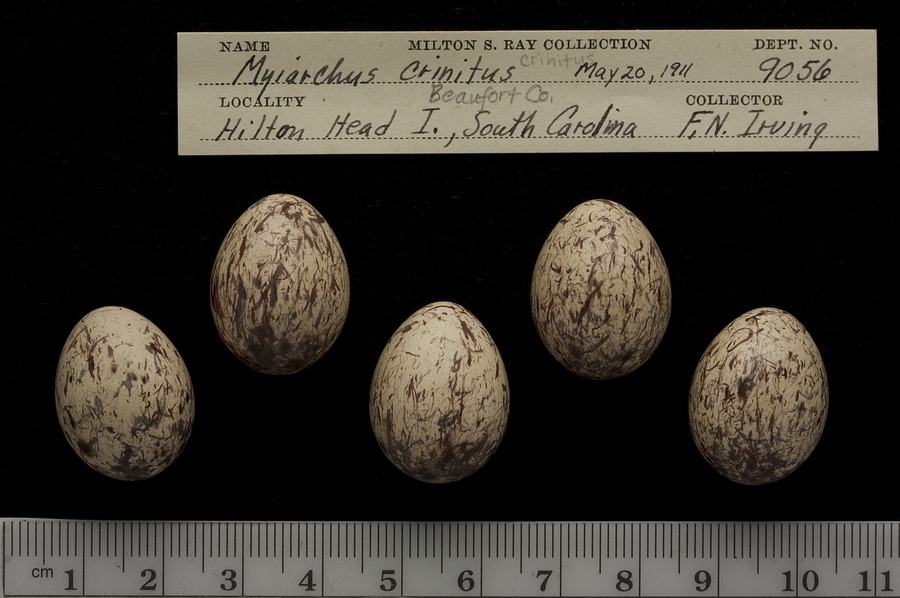 NAME MILTON S. RAY COLLECTION DEPT. NO.
Myiarchus crinitus crinitus May 20, 1911 9056
LOCALITY Beaufort Co. COLLECTOR
Hilton Head I., South Carolina F. N. Irving
cm 1 2 3 4 5 6 7 8 9 10 11